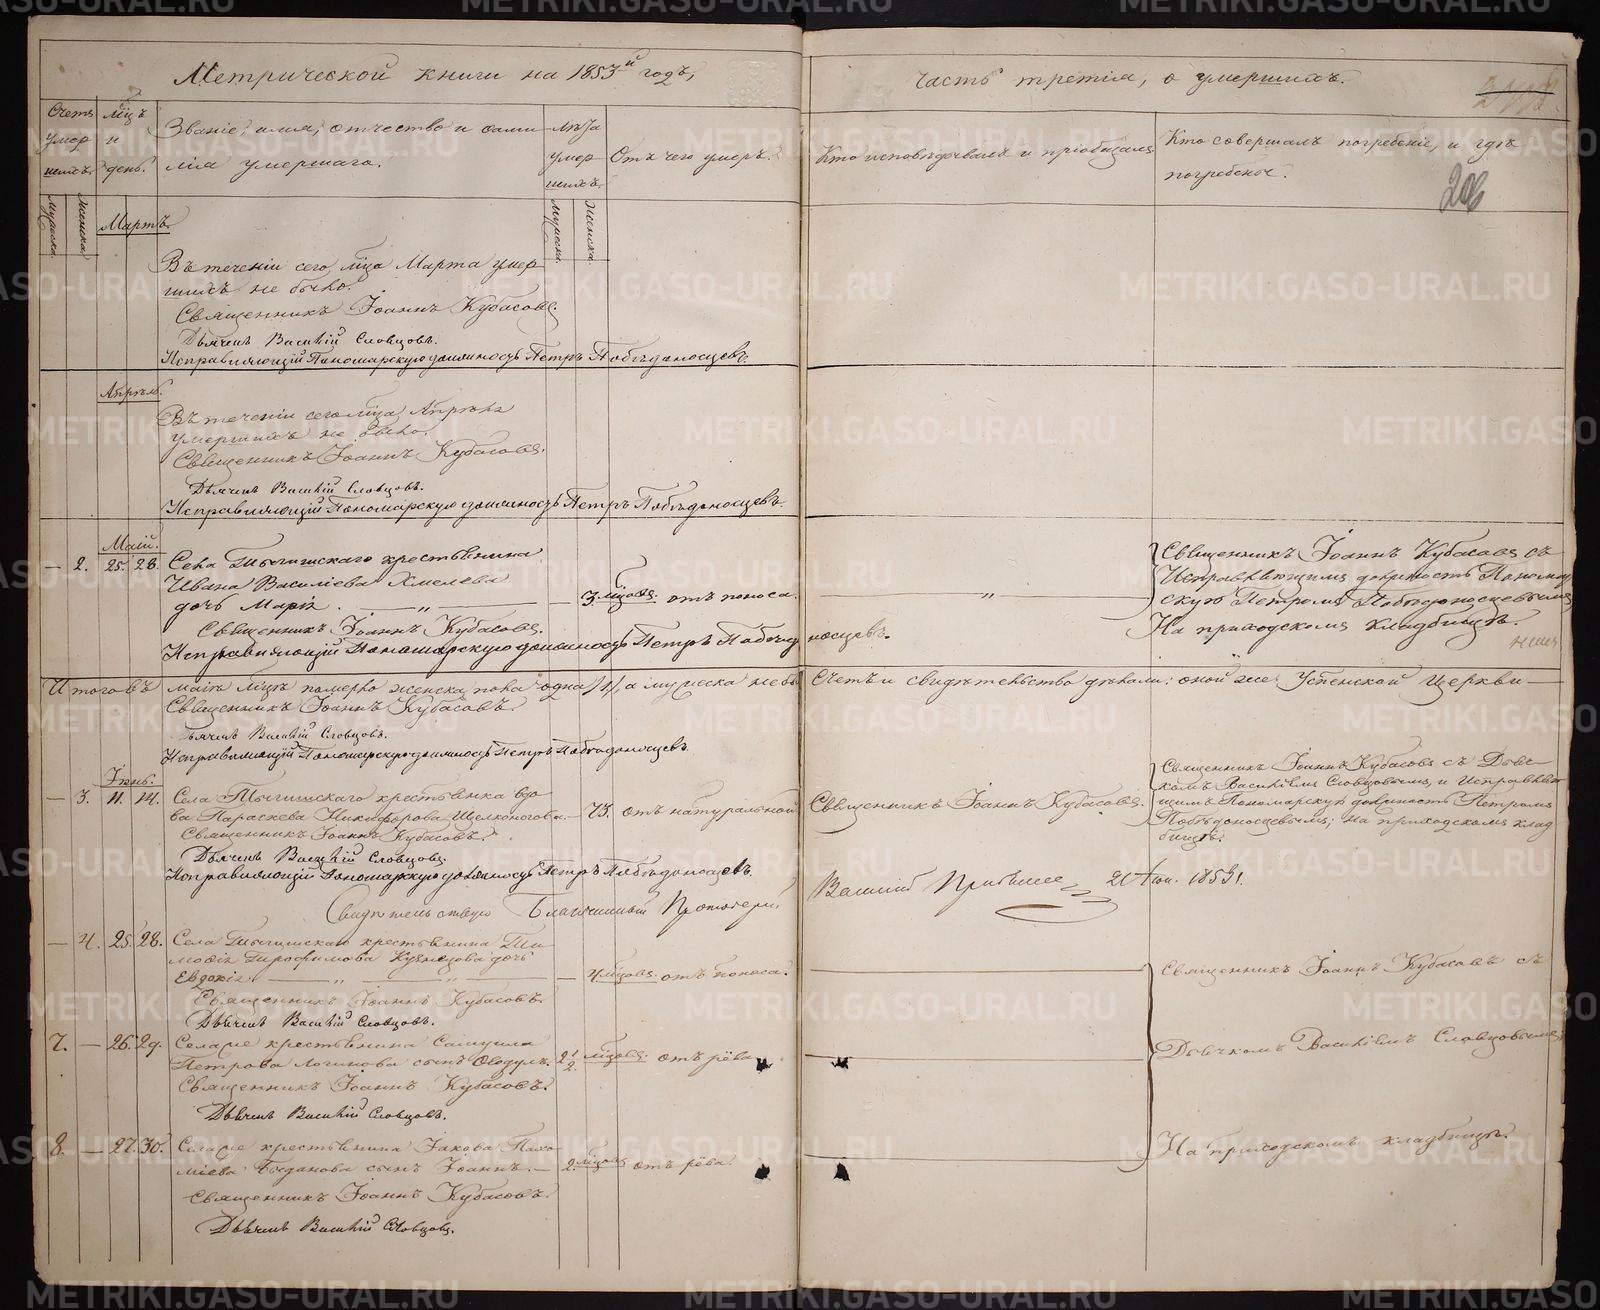 Метрической книги на 1853й годъ,
часть третія, о умершихъ.
Счетъ умер шихъ.
Мцъ и день.
Званіе, имя, отчество и фами
лія умершаго.
Лѣта умер шихъ.
Отъ чего умеръ.
Кто исповѣдывалъ и пріобщалъ
Кто совершалъ погребеніе, и гдѣ
погребены.
206
Мужеска
Женска
Мартъ.
Мужеска.
Женска.
Въ теченіи сего мца Марта умер
шихъ не было.
Священникъ Іоаннъ Кубасовъ.
Дьячекъ Василій Словцовъ.
Исправляющій Пономарскую должность Петръ Побѣдоносцевъ.
Апрѣль.
Въ теченіи сего мца Апрѣля
умершихъ не было.
Священникъ Іоаннъ Кубасовъ.
Дьячекъ Василій Словцовъ.
Исправляющій Пономарскую должность Петръ Побѣдоносцевъ.
Маій.
— 2. 25. 28. Села крестьянина
Ивана Василіева Хмелева
дочь Марія. — „ — 3. мцовъ. отъ поноса. — „ —
Священникъ Іоаннъ Кубасовъ съ
Исправляющимъ должность Пономар
скую Петромъ Побѣдоносцевымъ
На приходскомъ кладбищѣ.
Священникъ Іоаннъ Кубасовъ.
Исправляющій Пономарскую должность Петръ Побѣдоносцевъ.
Итого въ маіѣ мцѣ померло женска пола одна /1/, а мужеска не бы
Счетъ и свидѣтельство дѣлали: оной же Успенской Церкви —
Священникъ Іоаннъ Кубасовъ.
Дьячекъ Василій Словцовъ.
Исправляющій Пономарскую должность Петръ Побѣдоносцевъ.
Іюнь.
— 3. 11. 14. Села крестьянка вдо
ва Параскева Никифорова Щелконогова. — 73. отъ натуральной
Священникъ Іоаннъ Кубасовъ.
Священникъ Іоаннъ Кубасовъ съ Дьяч
комъ Василіемъ Словцовымъ и Исправляю
щимъ Пономарскую должность Петромъ
Побѣдоносцевымъ; на приходскомъ клад
бищѣ.
Священникъ Іоаннъ Кубасовъ.
Дьячекъ Василій Словцовъ.
Исправляющій Пономарскую должность Петръ Побѣдоносцевъ.
Свидѣтельствую Благочинный Протоіерей
— 4. 25. 28. Села крестьянина Ти
моѳія Трофимова Кузнецова дочь
Евдокія. — „ — „ — 4 мцовъ. отъ поноса.
Священникъ Іоаннъ Кубасовъ съ
Священникъ Іоаннъ Кубасовъ.
Дьячекъ Василій Словцовъ.
7. — 26. 29. Села же крестьянина Самуила
Петрова Логинова сынъ Ѳеодулъ. 2 1/2 мцовъ. отъ рёва
Дьячкомъ Василіемъ Словцовымъ
Священникъ Іоаннъ Кубасовъ.
Дьячекъ Василій Словцовъ.
8. — 27. 30. Села же крестьянина Іакова Пахо
міева Богданова сынъ Іоаннъ. — 2. мцовъ отъ рёва.
На приходскомъ кладбищѣ.
Священникъ Іоаннъ Кубасовъ.
Дьячекъ Василій Словцовъ.
METRIKI.GASO-URAL.RU